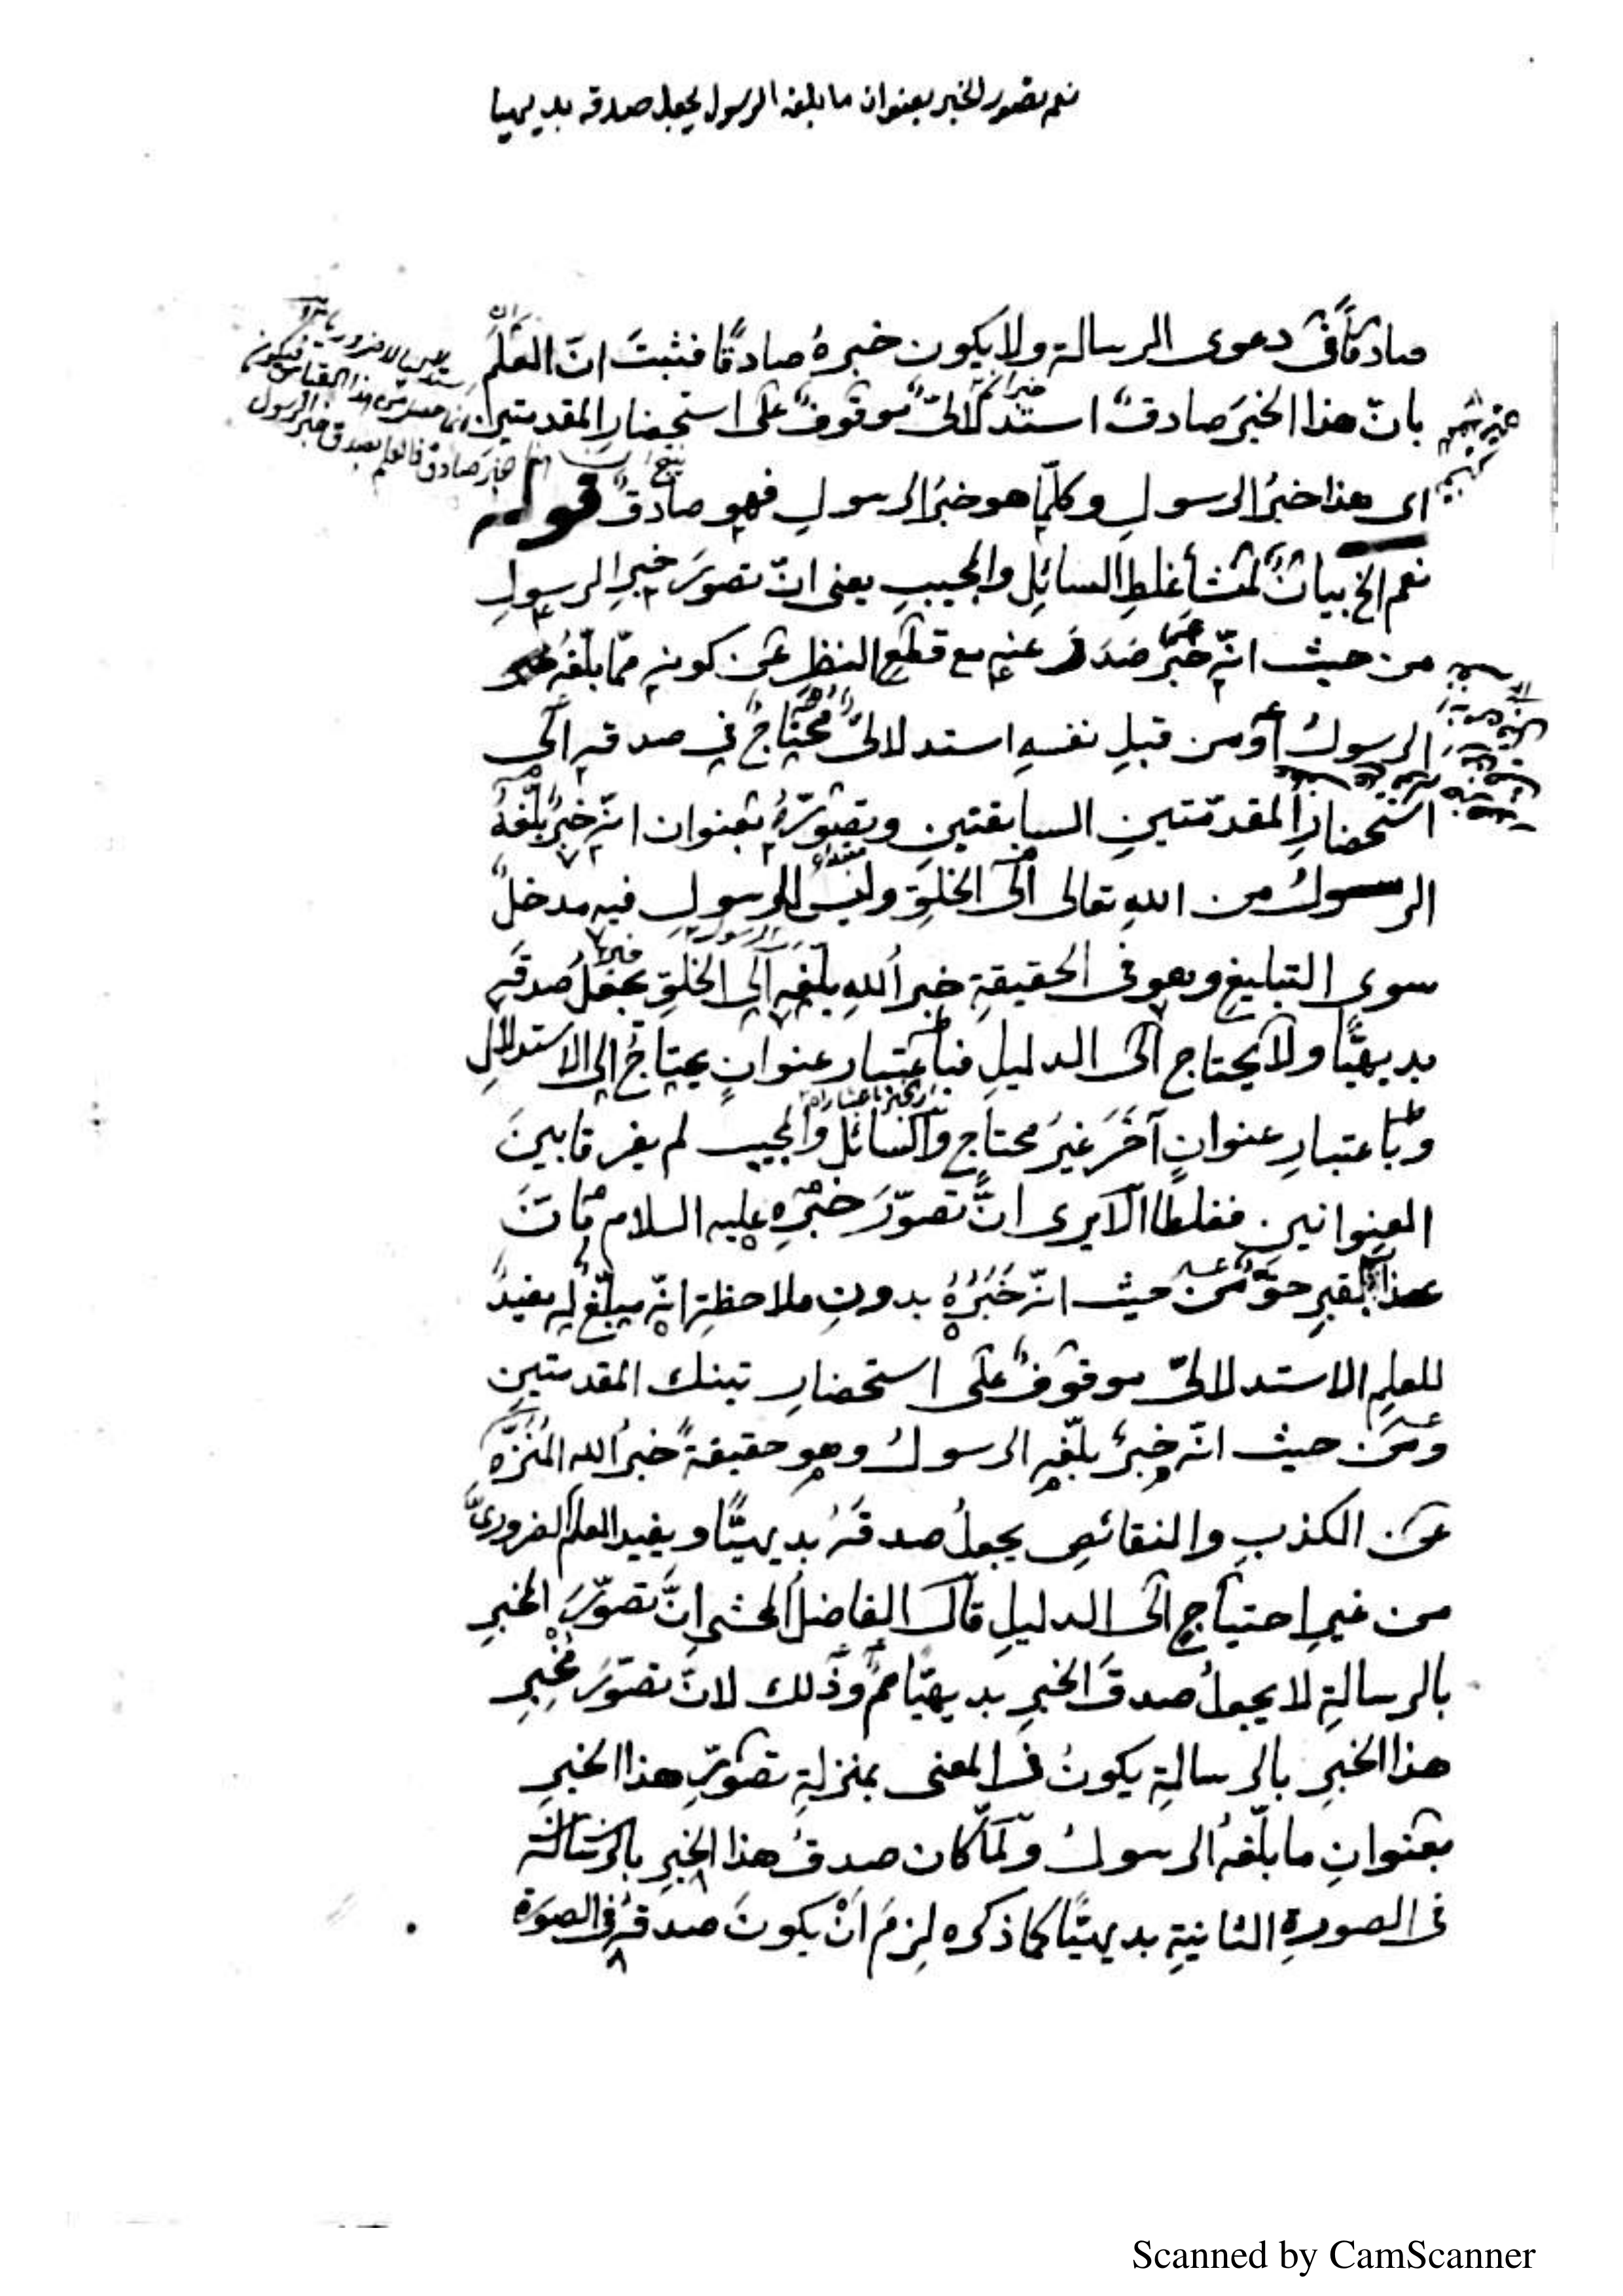 نعم تصور الخبر بعنوان ما بلغه الرسول يجعل صدقه بديهيا
صادقًا فى دعوى الرسالة ولا يكون خبرهُ صادقًا فثبتَ انّ العلمَ
بانّ هذا الخبرَ صادقٌ استدلالىٌّ موقوفٌ على استحضارِ المقدمتين
اى هذا خبرُ الرسولِ وكلّما هو خبرُ الرسولِ فهو صادقٌ قوله
نعم الخ بيانٌ لمنشأ غلطِ السائِلِ والمجيبِ يعنى انّ تصورَ خبرِ الرسولِ
من حيث انّه خبرٌ صَدَرَ عنه مع قطعِ النظرِ عن كونِهِ ممّا بلّغهُ
الرسولُ أو من قبلِ نفسِهِ استدلالىٌّ محتاجٌ فى صدقهِ الَى
استحضارِ المقدّمتينِ السابقتينِ وتصوّرُهُ بعنوان انّه خبرٌ بلّغهُ
الرسولُ من اللهِ تعالى الَى الخلقِ وليس للرسولِ فيه مدخلٌ
سوى التبليغِ وهو فى الحقيقةِ خبرُ اللهِ بلّغهِ الَى الخلقِ يجعَلُ صدقَه
بديهيًّا ولا يحتاج الَى الدليلِ فباعتبار عنوانٍ يحتاجُ الى الاستدلالِ
وباعتبارِ عنوانٍ آخَرَ غيرُ محتاجٍ والسائل والمجيب لم يفرقا بينَ
العنوانين فغلطا الَا يرى انّ تصوّرَ خبرِهِ عليه السلام بانّ
عذابَ القبرِ حقٌّ من حيث انّه خَبَرُهُ بدونِ ملاحظةِ انّه مبلّغٌ له مفيدٌ
للعلمِ الاستدلالىِّ موقوفٌ على استحضارِ تينك المقدمتينِ
ومن حيث انّه خبرٌ بلّغه الرسولُ وهو حقيقةً خبرُ الله المنزَّهِ
عن الكذبِ والنقائصِ يجعلُ صدقَهُ بديهيًّا ويفيد العلمَ الضرورىَّ
من غيرِ احتياجٍ الَى الدليلِ قالَ الفاضلُ المحشى انّ تصوّرَ المخبرِ
بالرسالةِ لا يجعلُ صدقَ الخبرِ بديهيًّا مم وذلك لانّ تصوّرَ مُخبِرِ
هذا الخبرِ بالرسالةِ يكونُ فى المعنى بمنزلةِ تصوّرِ هذا الخبرِ
بعنوانِ ما بلّغهُ الرسولُ ولمّا كان صدقُ هذا الخبرِ بالرسالة
فى الصورةِ الثانيةِ بديهيًّا كما ذكره لزمَ انْ يكونَ صدقهُ فى الصورة
Scanned by CamScanner